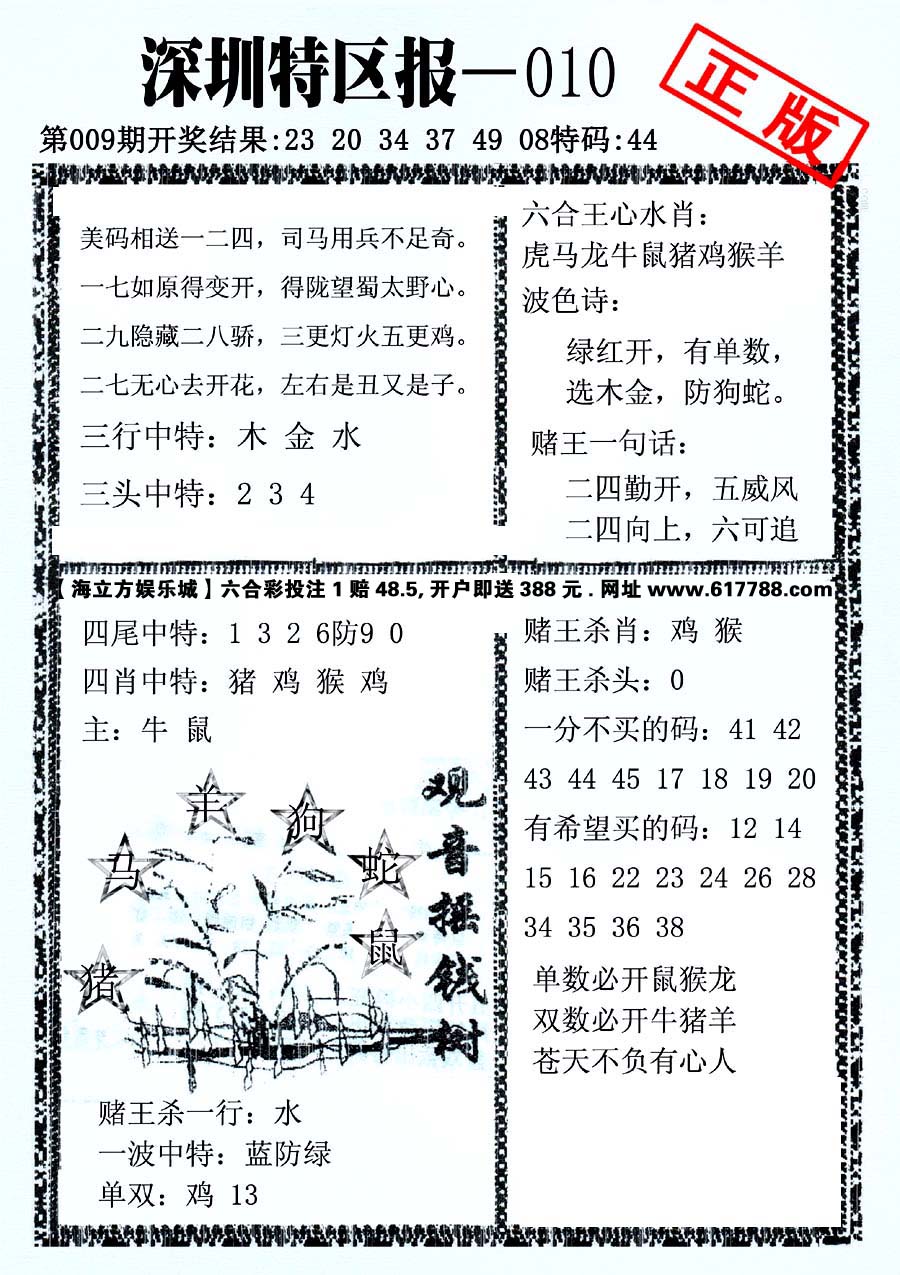 深圳特区报—010
正版
第009期开奖结果:23 20 34 37 49 08特码:44
美码相送一二四，司马用兵不足奇。
一七如原得变开，得陇望蜀太野心。
二九隐藏二八骄，三更灯火五更鸡。
二七无心去开花，左右是丑又是子。
三行中特：木 金 水
三头中特：2 3 4
六合王心水肖：
虎马龙牛鼠猪鸡猴羊
波色诗：
绿红开，有单数，
选木金，防狗蛇。
赌王一句话：
二四勤开，五威风
二四向上，六可追
【海立方娱乐城】六合彩投注1赔48.5,开户即送388元.网址www.617788.com
四尾中特：1 3 2 6防9 0
四肖中特：猪 鸡 猴 鸡
主：牛 鼠
羊
狗
马
蛇
鼠
猪
观音摇钱树
赌王杀一行：水
一波中特：蓝防绿
单双：鸡 13
赌王杀肖：鸡 猴
赌王杀头：0
一分不买的码：41 42
43 44 45 17 18 19 20
有希望买的码：12 14
15 16 22 23 24 26 28
34 35 36 38
单数必开鼠猴龙
双数必开牛猪羊
苍天不负有心人